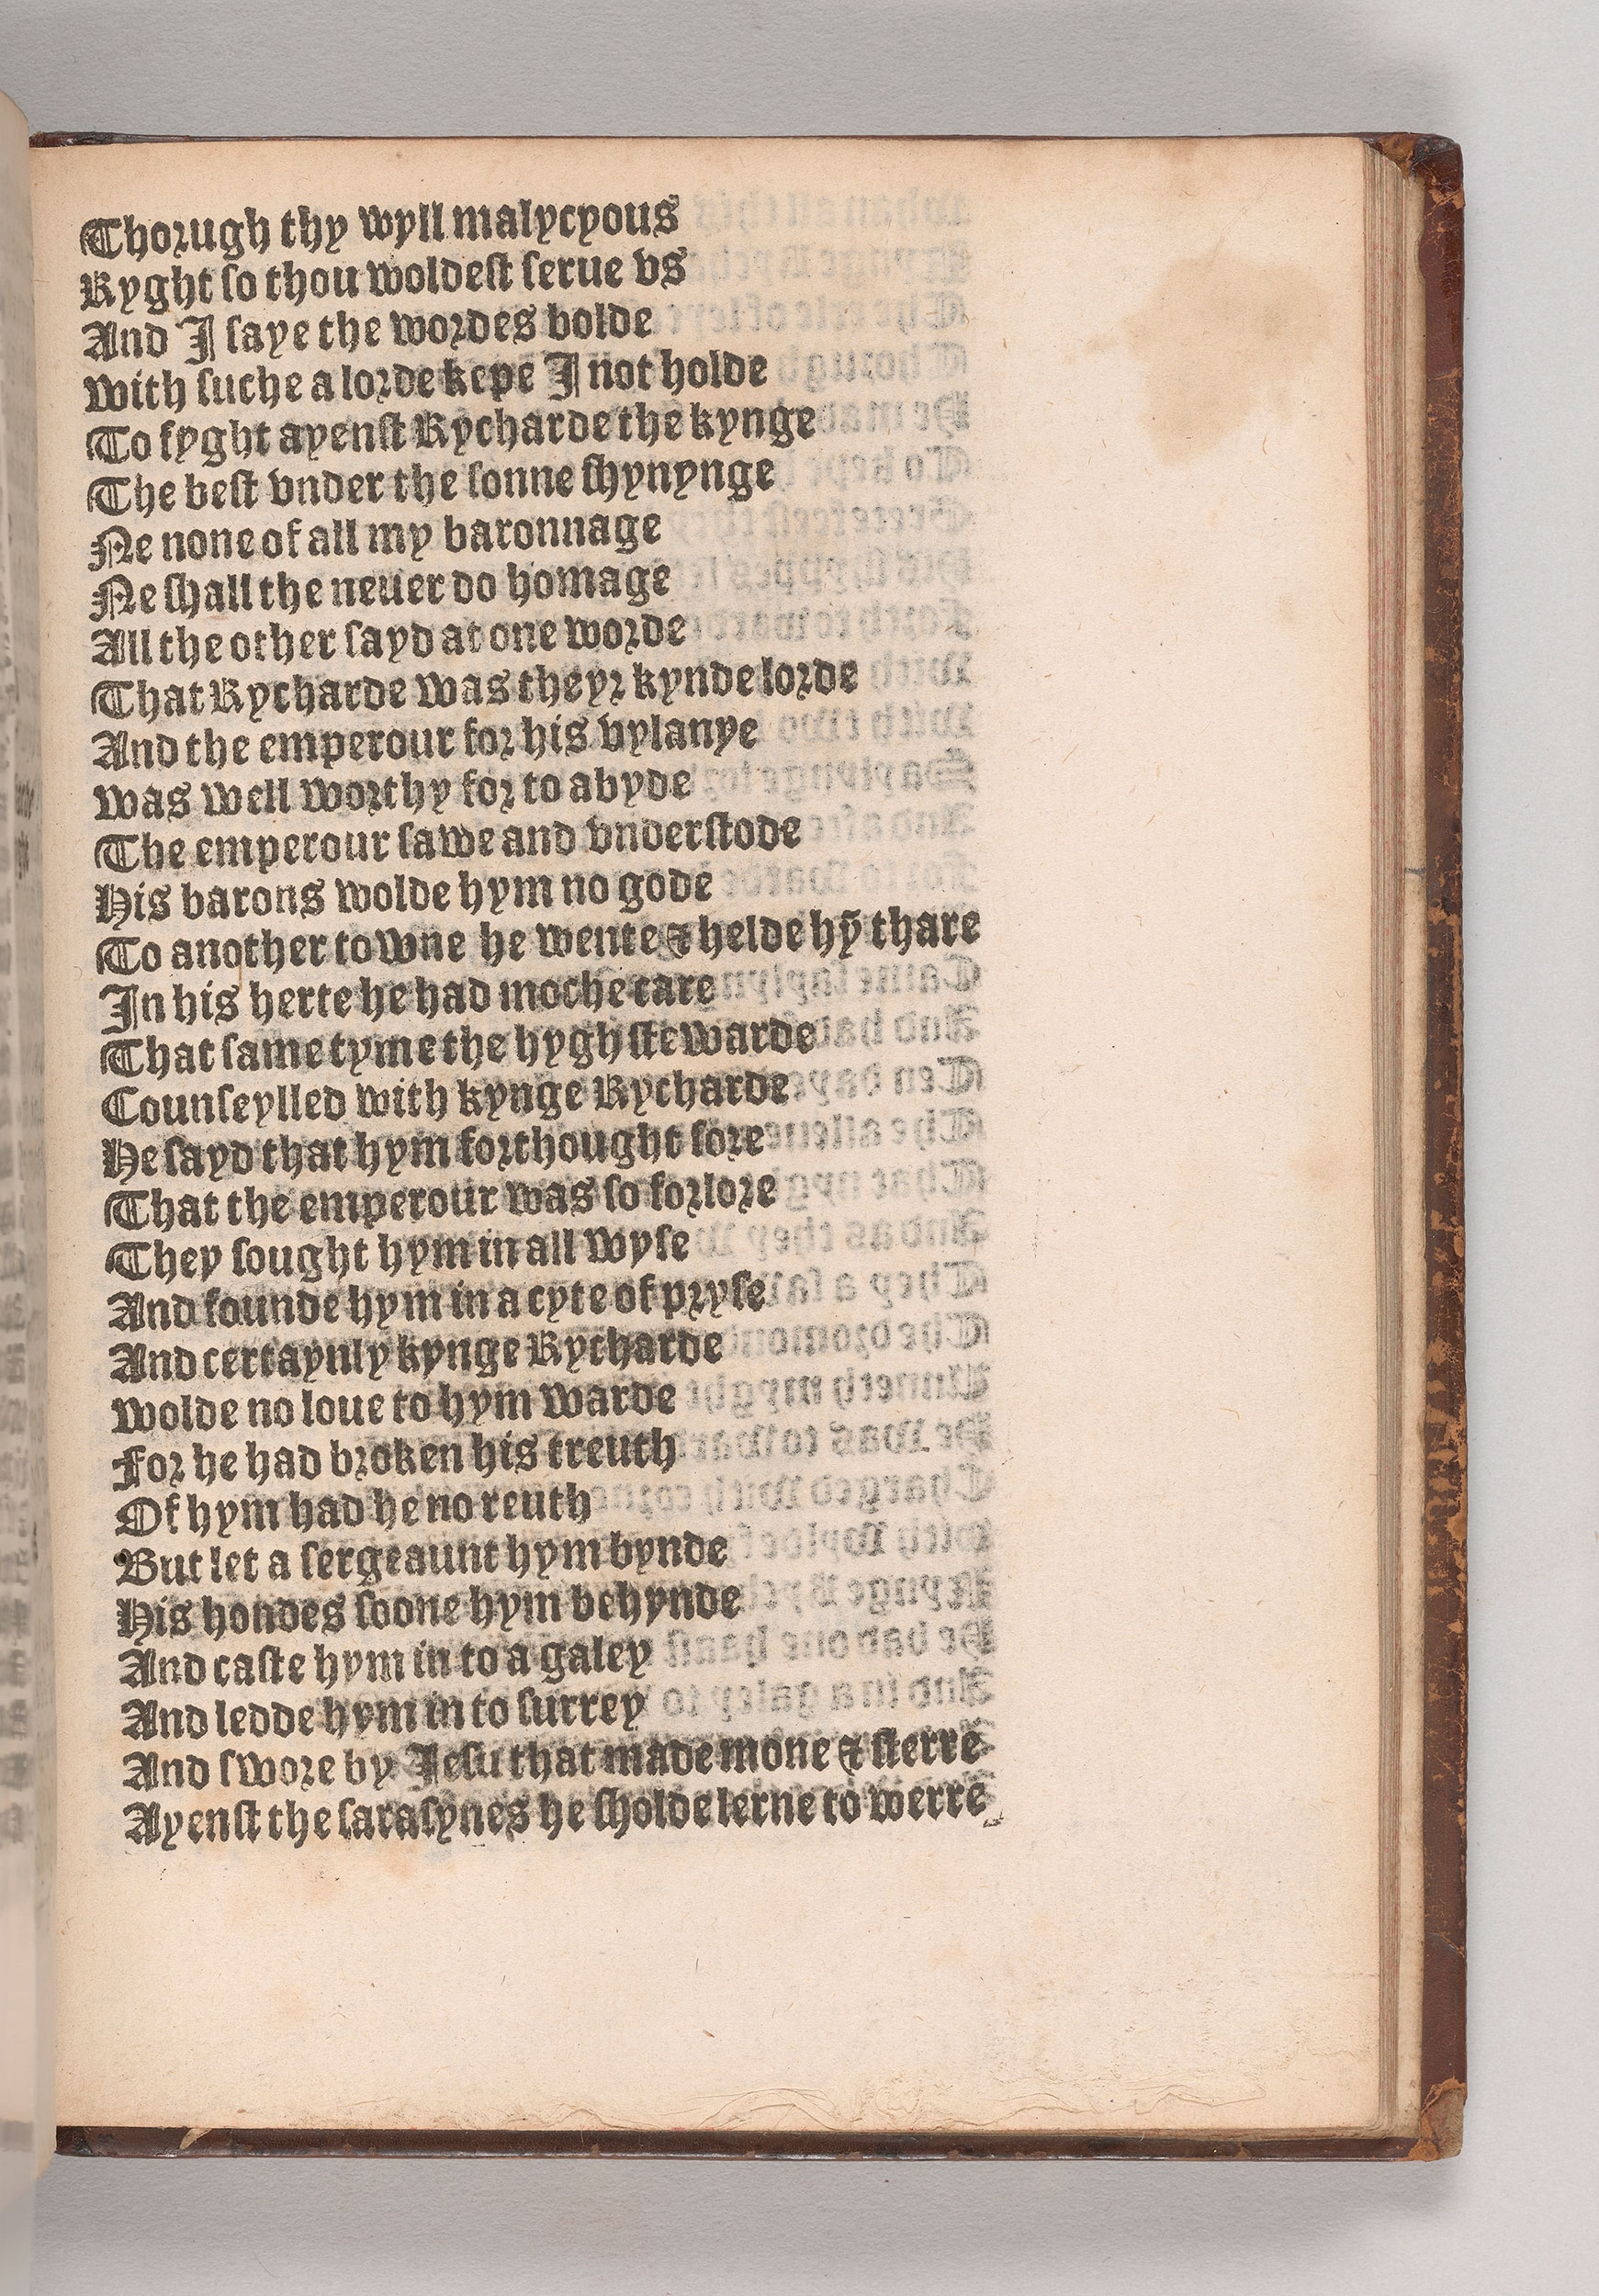 Thorugh thy wyll malycyous
Ryght ſo thou woldeſt ſerue vs
And I ſaye the wordes bolde
with ſuche a lorde kepe I not holde
To fyght ayenſt Rycharde the kynge
The beſt vnder the ſonne ſhynynge
Ne none of all my baronnage
Ne ſhall the neuer do homage
All the other ſayd at one worde
That Rycharde was theyr kynde lorde
And the emperour for his vylanye
was well worthy for to abyde
The emperour ſawe and vnderſtode
His barons wolde hym no gode
To another towne he wente & helde hȳ thare
In his herte he had moche care
That ſame tyme the hygh ſtewarde
Counſeylled with kynge Rycharde
He ſayd that hym forthought ſore
That the emperour was ſo forlore
They ſought hym in all wyſe
And founde hym in a cyte of pryſe
And certaynly kynge Rycharde
wolde no loue to hym warde
For he had broken his treuth
Of hym had he no reuth
But let a ſergeaunt hym bynde
His hondes ſoone hym behynde
And caſte hym in to a galey
And ledde hym in to ſurrey
And ſwore by Ieſu that made mone & ſterre
Ayenſt the ſaraſynes he ſholde lerne to werre